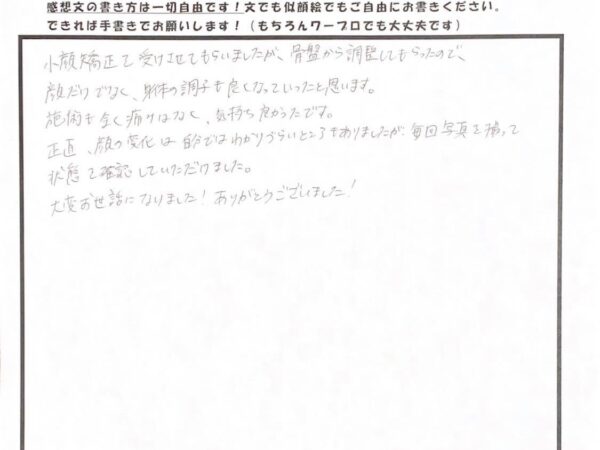 感想文の書き方は一切自由です！文でも似顔絵でもご自由にお書きください。
できれば手書きでお願いします！（もちろんワープロでも大丈夫です）
小顔矯正で受けさせてもらいましたが、骨盤から調整してもらったので、
顔だけでなく、身体の調子も良くなっていったと思います。
施術も全く痛みはなく、気持ち良かったです。
正直、顔の変化は自分ではわかりづらいところもありましたが毎回写真を撮って
状態を確認していただけました。
大変お世話になりました！ありがとうございました！